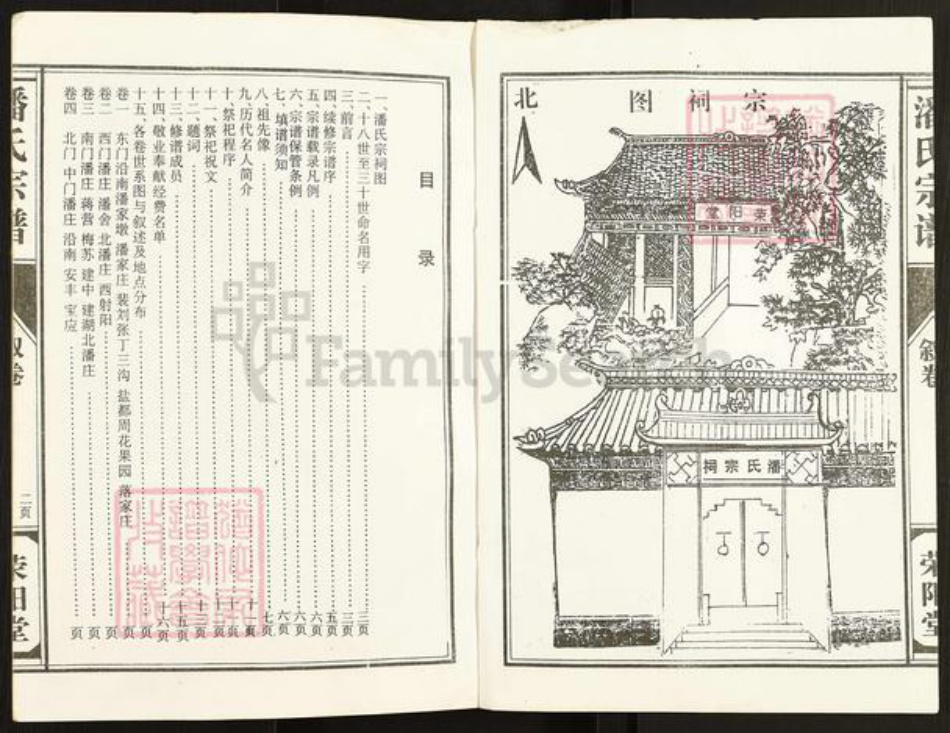 潘氏宗谱
叙卷
荣阳堂
宗祠图
北
荣阳堂
潘氏宗祠
目录
一、潘氏宗祠图
二、十八世至三十世命名用字 二页
三、前言 三页
四、续修宗谱序 五页
五、宗谱载录凡例 六页
六、宗谱保管条例 六页
七、填谱须知 六页
八、祖先像 七页
九、历代名人简介
十、祭祀程序
十一、祭祀祝文
十二、题词
十三、修谱成员 十五页
十四、敬业奉献经费名单 十六页
十五、各卷世系图与叙述及地点分布 页
卷一 东门沿南潘家墩 潘家庄 裴刘张丁三沟 盐都周花果园 落家庄 页
卷二 西门潘庄 潘舍 北潘庄 西射阳 页
卷三 南门潘庄 蒋营 梅苏 建中 建湖北潘庄 页
卷四 北门 中门潘庄 沿南 安丰 宝应 页
潘氏宗谱
叙卷
二页
荣阳堂
FamilySearch